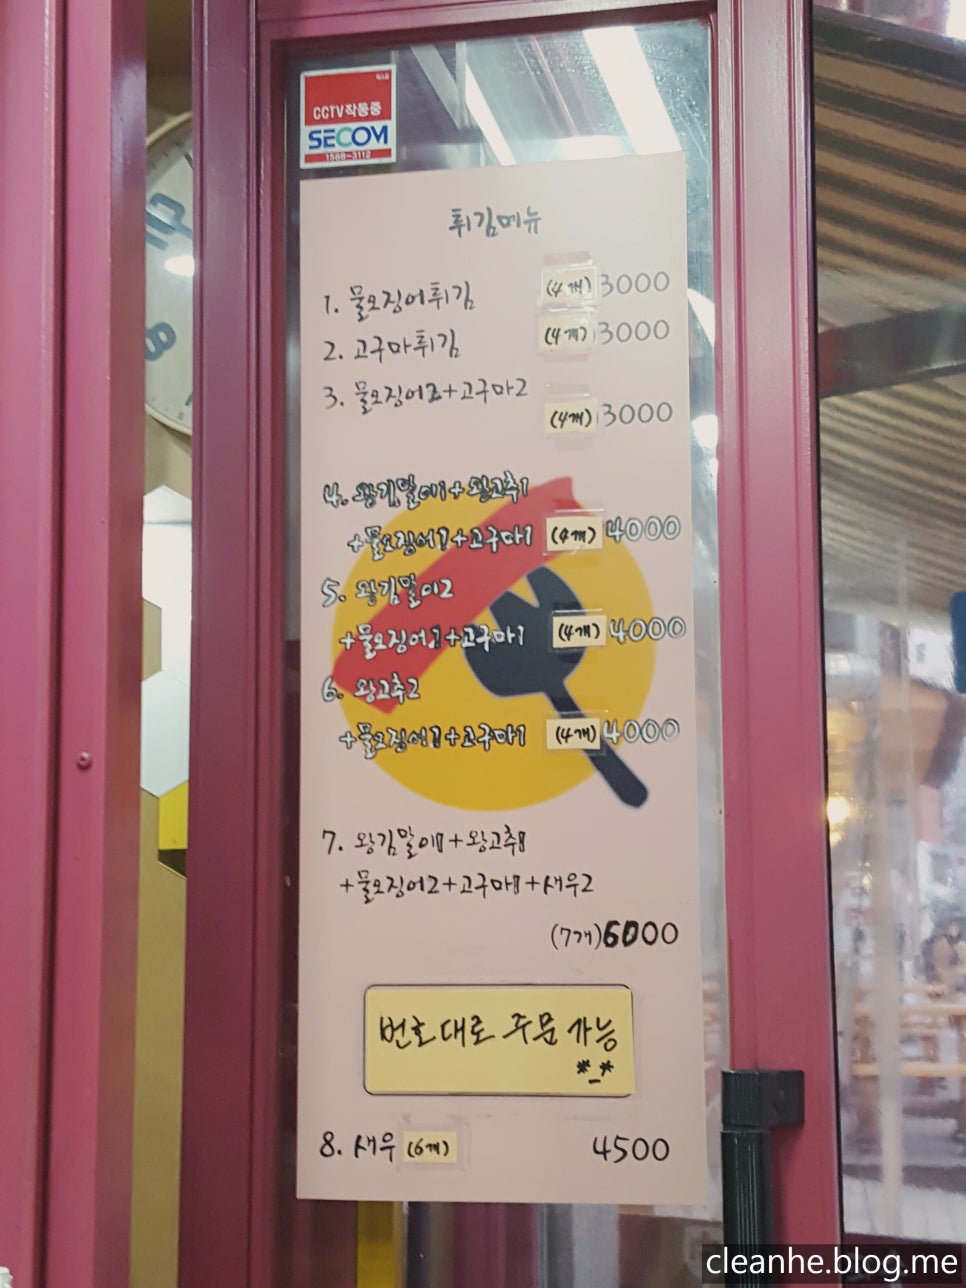 CCTV작동중
SECOM
1588-3112
튀김메뉴
1. 물오징어튀김 (4개) 3000
2. 고구마튀김 (4개) 3000
3. 물오징어2+고구마2
(4개) 3000
4. 왕김말이1+왕고추1
+물오징어1+고구마1 (4개) 4000
5. 왕김말이2
+물오징어1+고구마1 (4개) 4000
6. 왕고추2
+물오징어1+고구마1 (4개) 4000
7. 왕김말이1+왕고추1
+물오징어2+고구마1+새우2
(7개) 6000
번호대로 주문 가능
*_*
8. 새우 (6개) 4500
cleanhe.blog.me